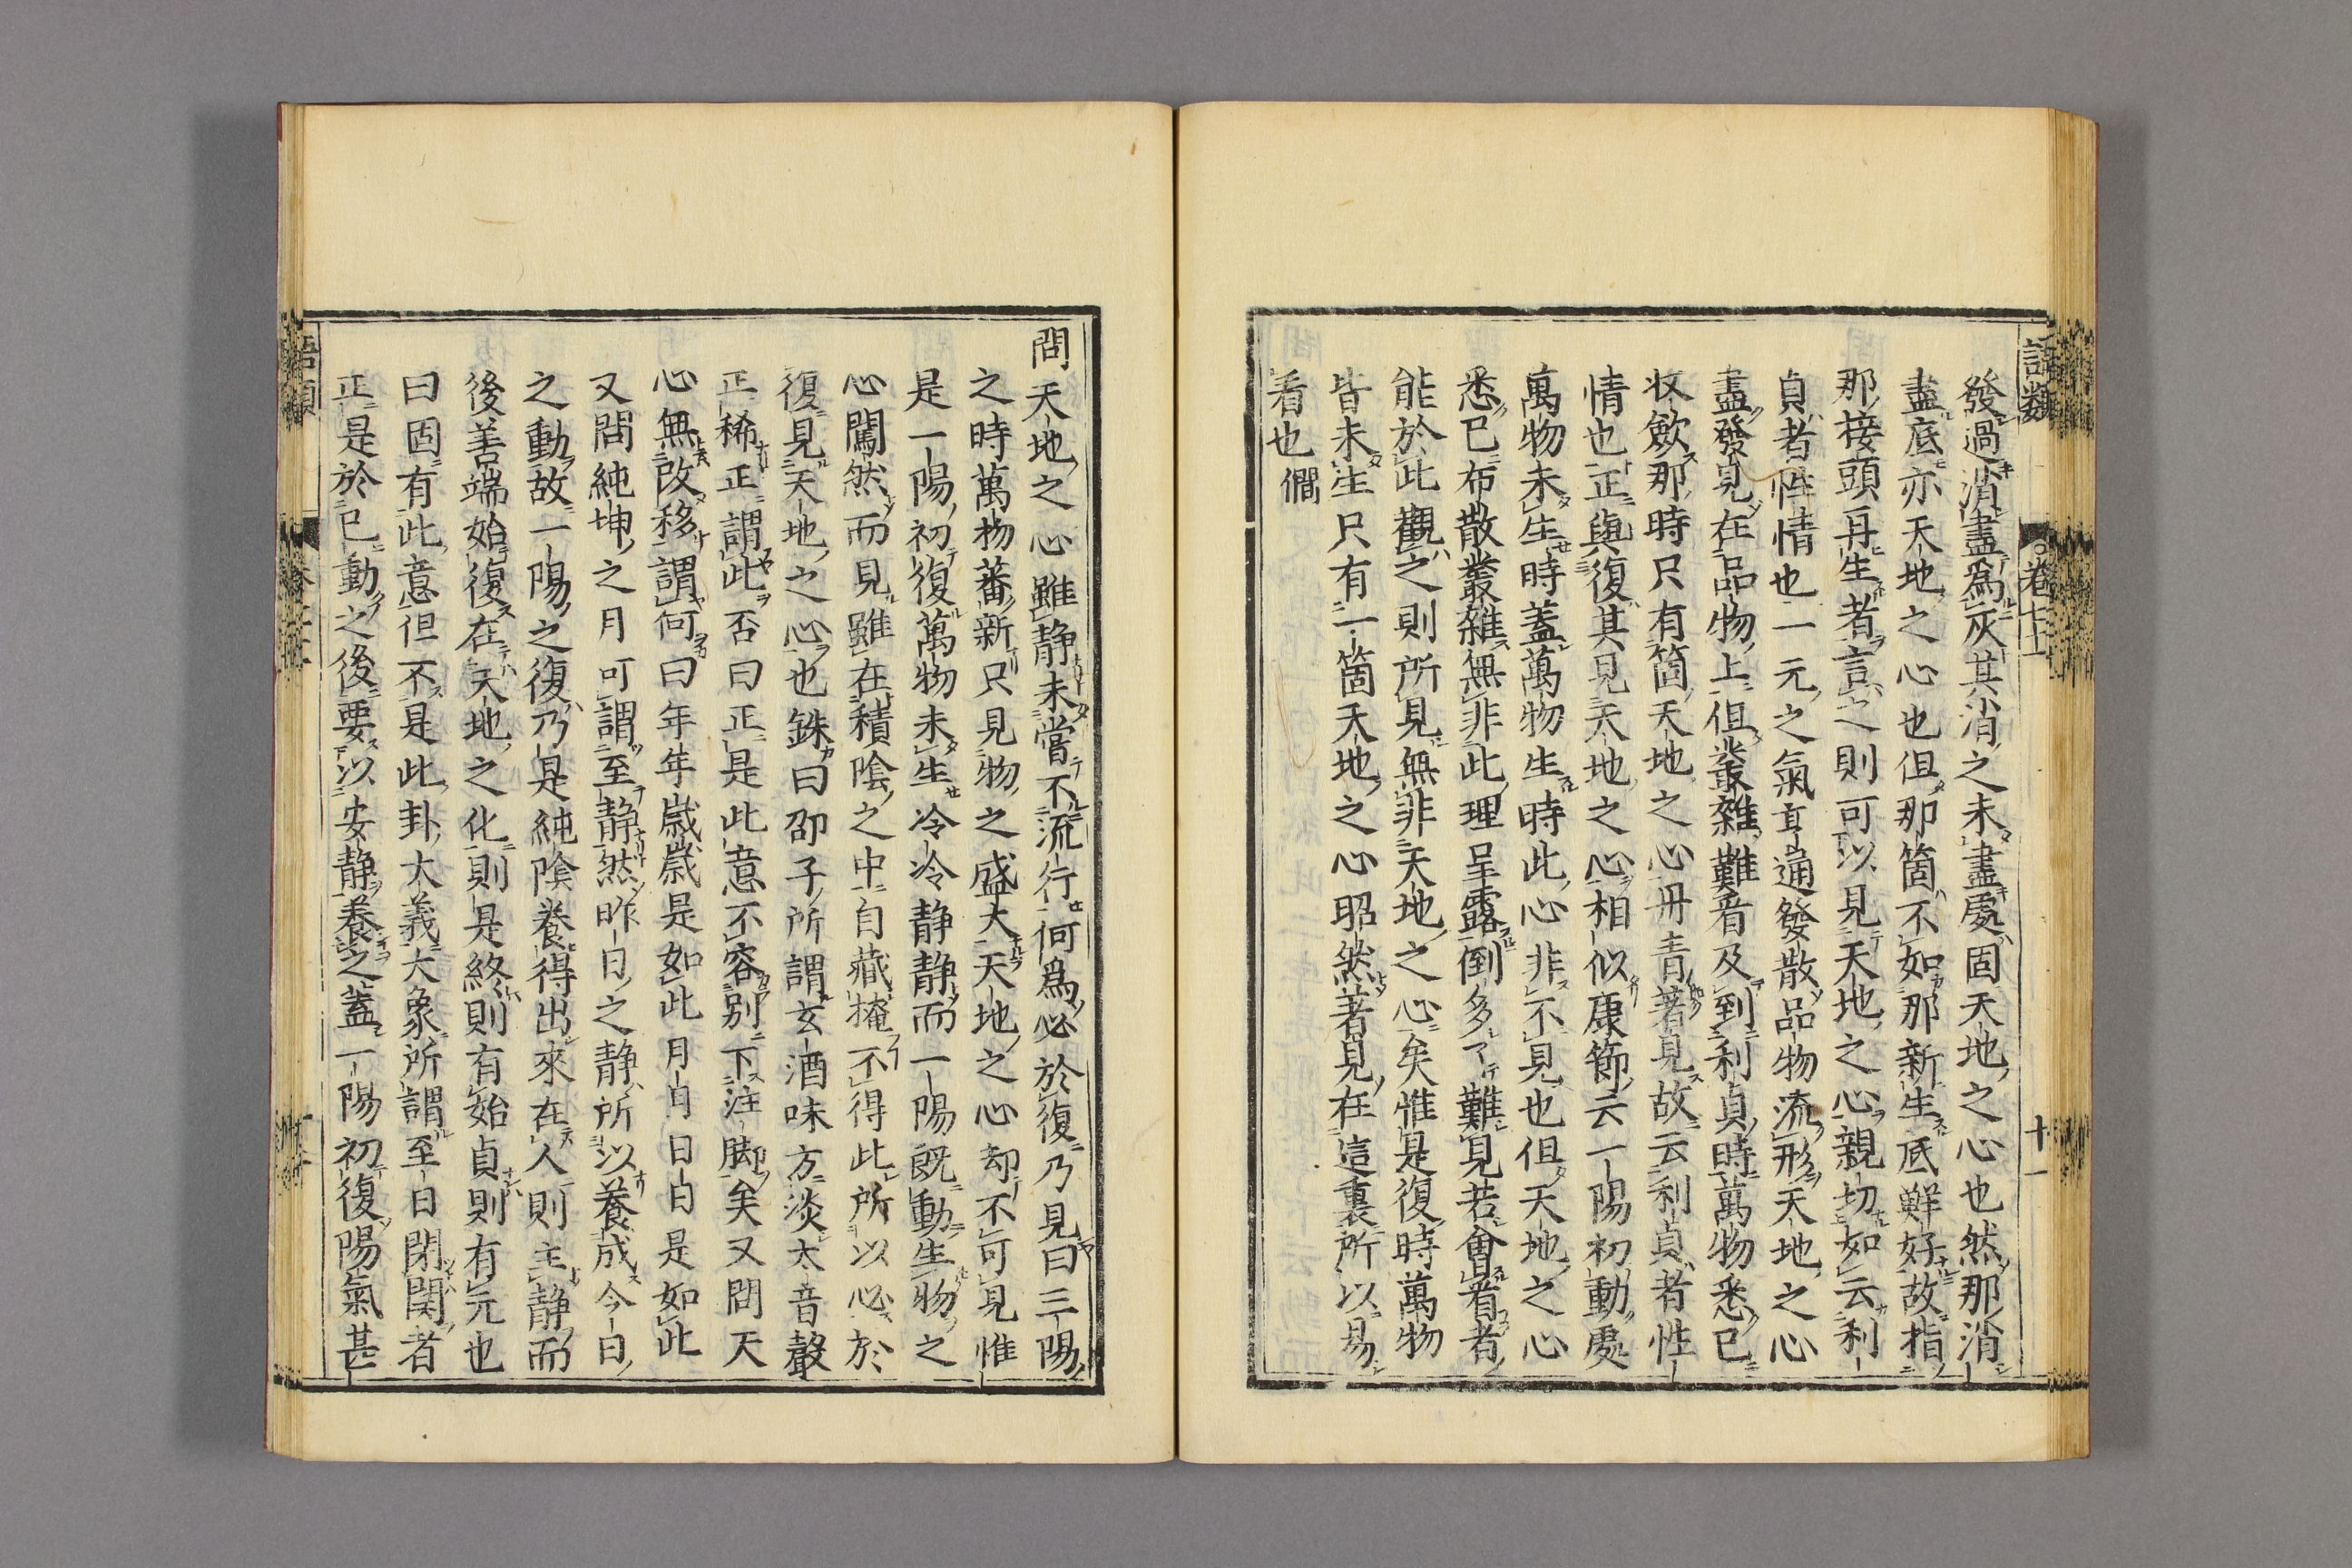 語類 卷七十一 十一
發過消盡為灰其消之未盡處固天地之心也然那消
盡底亦天地之心也但那箇不如那新生底鮮好故指
那接頭再生者言之則可以見天地之心親切如云利
貞者性情也一元之氣亨通發散品物流形天地之心
盡發見在品物上但叢雜難看及到利貞時萬物悉已
收斂那時只有箇天地之心丹青著見故云利貞者性
情也正與復其見天地之心相似康節云一陽初動處
萬物未生時蓋萬物生時此心非不見也但天地之心
悉已布散叢雜無非此理呈露倒多了難見若會看者
能於此觀之則所見無非天地之心矣惟是復時萬物
皆未生只有一箇天地之心昭然著見在這裏所以易
看也 僩
問天地之心雖静未嘗不流行何爲必於復乃見曰三陽
之時萬物蕃新只見物之盛大天地之心却不可見惟
是一陽初復萬物未生冷冷静静而一陽既動生物之
心闖然而見雖在積陰之中自藏掩不得此所以必於
復見天地之心也銖曰邵子所謂玄酒味方淡太音聲
正稀正謂此否曰正是此意不容别下注脚矣又問天
心無改移謂何曰年年歲歲是如此月月日日是如此
又問純坤之月可謂至静然昨日之静所以養成今日
之動故一陽之復乃是純陰養得出來在人則主静而
後善端始復在天地之化則是終則有始貞則有元也
曰固有此意但不是此卦大義大象所謂至日閉関者
正是於已動之後要以安静養之蓋一陽初復陽氣甚